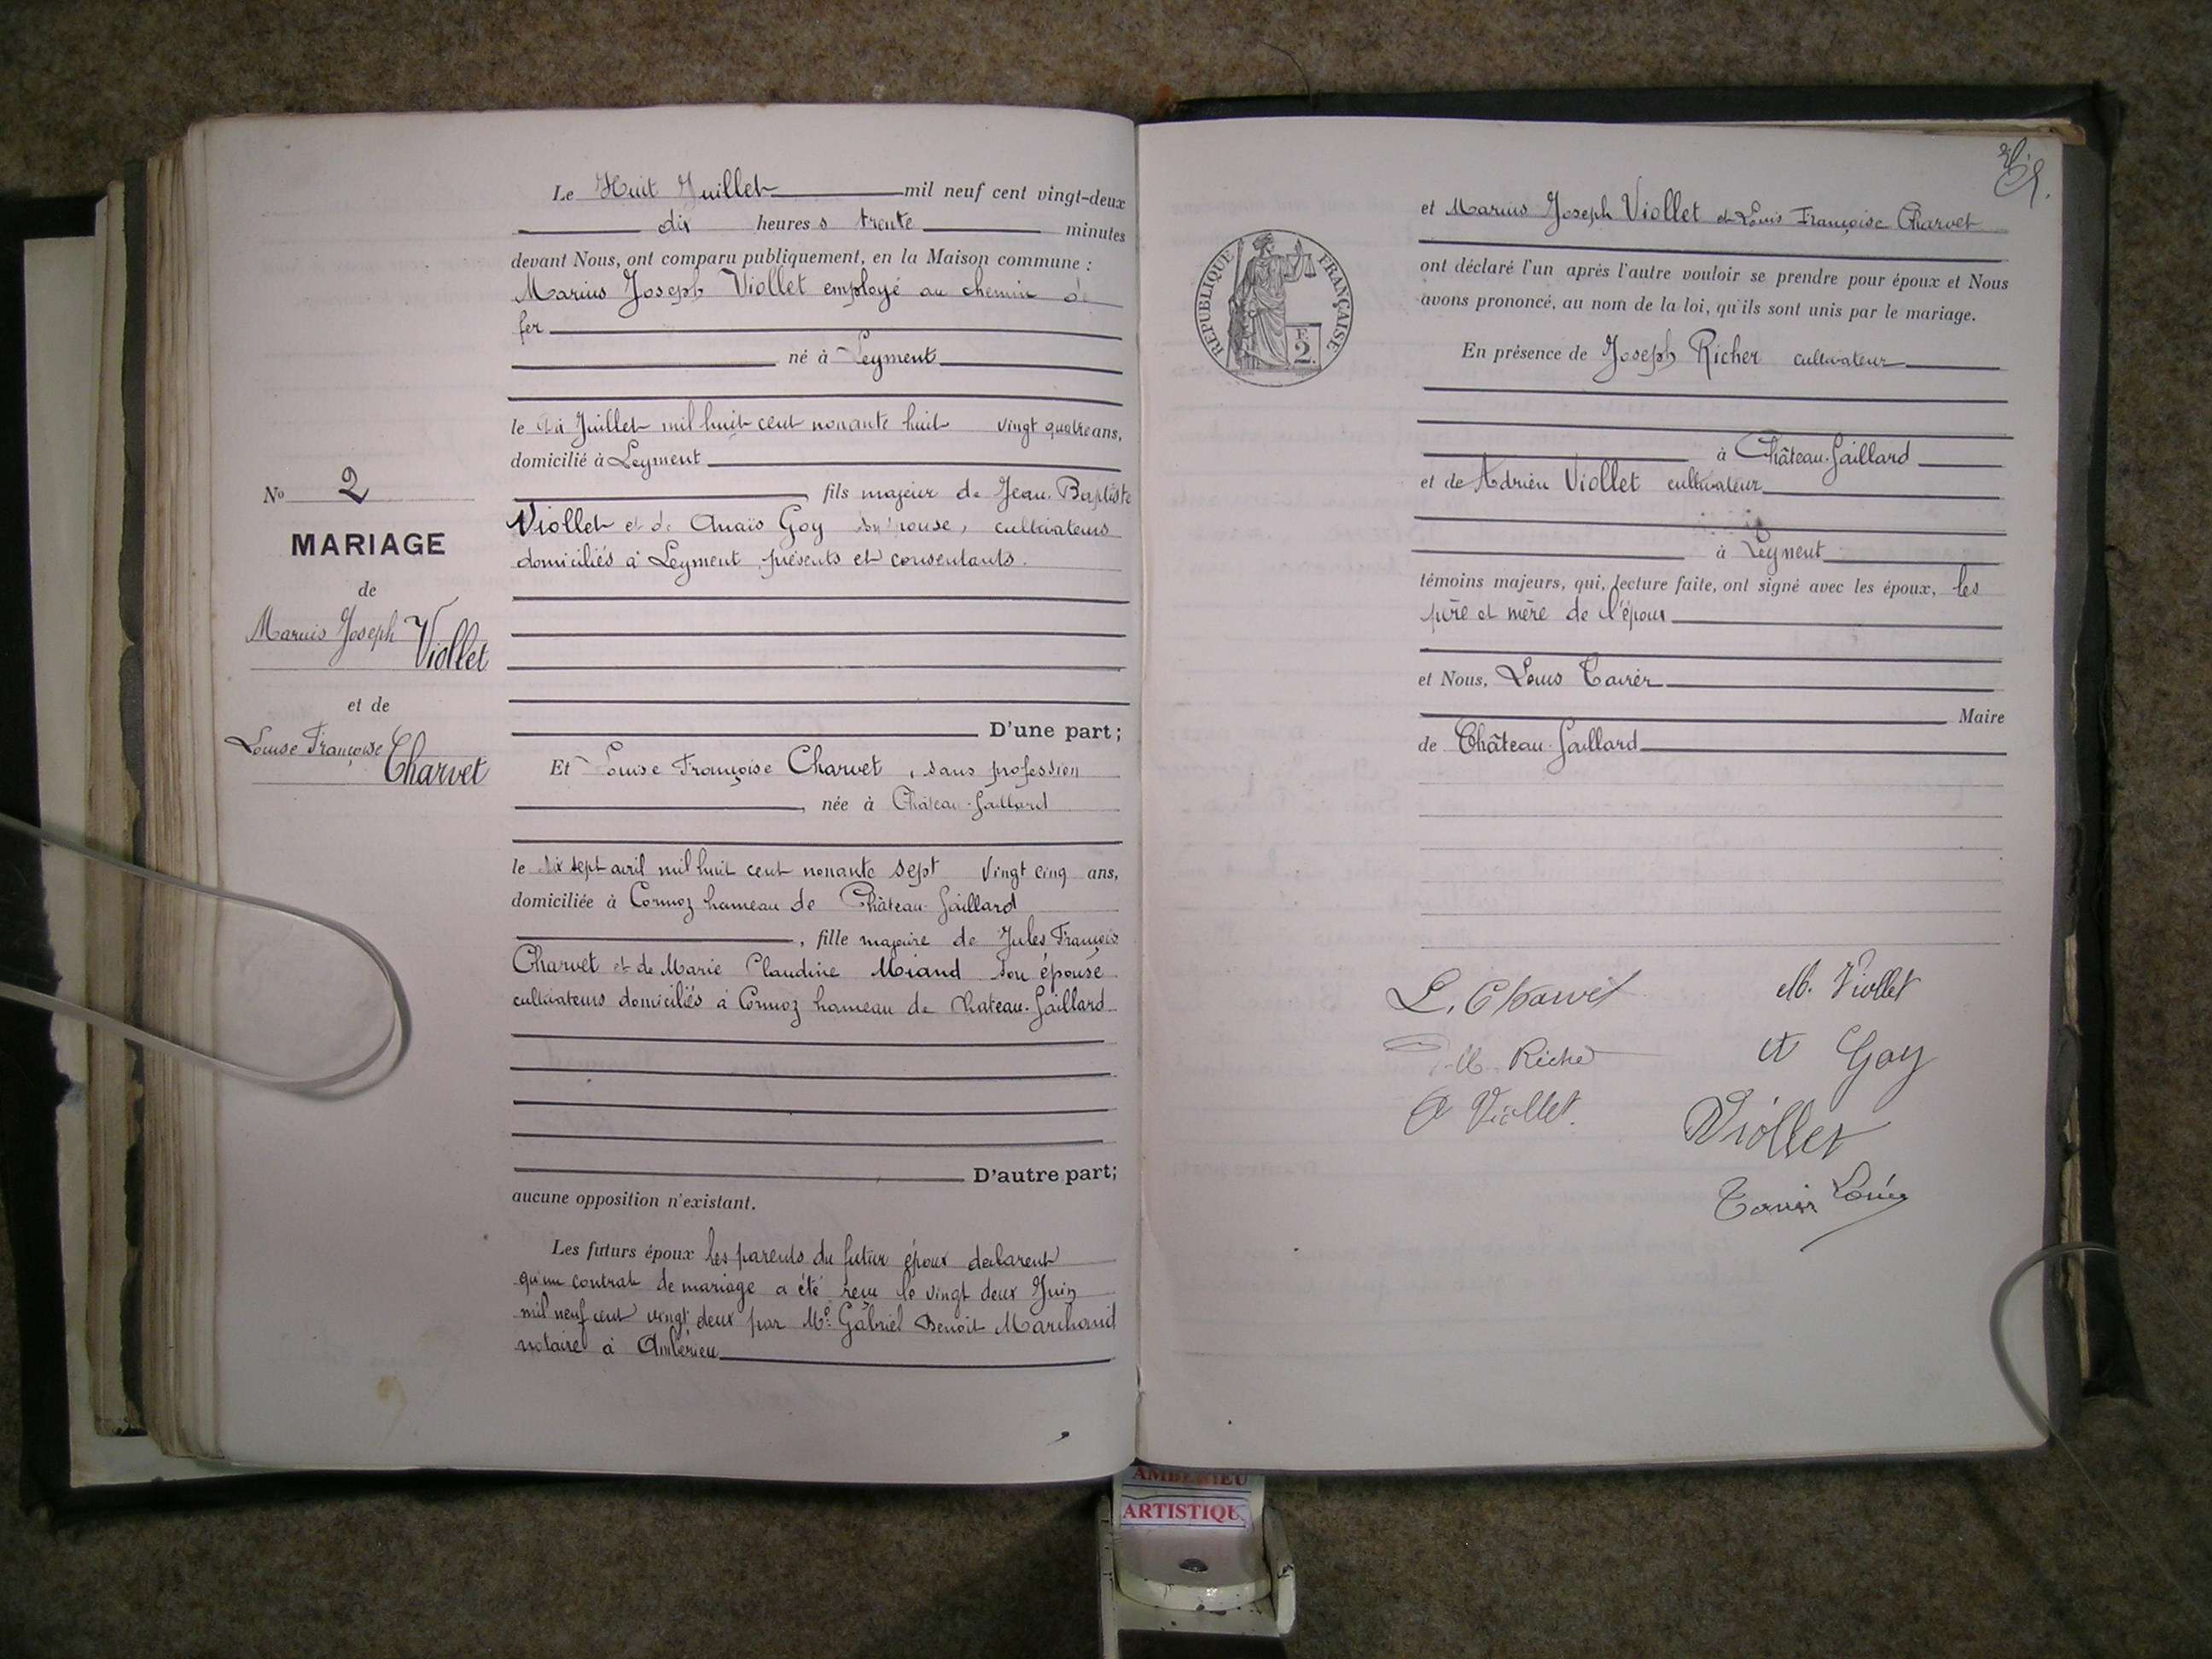 Le Huit Juillet mil neuf cent vingt-deux
dix heures trente minutes
devant Nous, ont comparu publiquement, en la Maison commune :
Marius Joseph Viollet employé au chemin de
fer
né à Leyment
le Juillet mil huit cent nonante huit vingt quatre ans,
domicilié à Leyment
fils majeur de Jean Baptiste
Viollet et de Anaïs Goy son épouse, cultivateurs
domiciliés à Leyment, présents et consentants.
No 2
MARIAGE
de
Marius Joseph Viollet
et de
Louise Françoise Charvet
D'une part;
Et Louise Françoise Charvet, sans profession
, née à Château-Gaillard
le dix sept avril mil huit cent nonante sept vingt cinq ans,
domiciliée à Cormoz hameau de Château-Gaillard
, fille majeure de Jules François
Charvet et de Marie Claudine Miand son épouse
cultivateurs domiciliés à Cormoz hameau de Chateau-Gaillard
D'autre part;
aucune opposition n'existant.
Les futurs époux les parents du futur époux declarent
qu'un contrat de mariage a été reçu le vingt deux Juin
mil neuf cent vingt deux par Me Gabriel Benoit Marchand
notaire à Ambérieu
RÉPUBLIQUE FRANÇAISE
2
et Marius Joseph Viollet et Louis Françoise Charvet
ont déclaré l'un après l'autre vouloir se prendre pour époux et Nous
avons prononcé, au nom de la loi, qu'ils sont unis par le mariage.
En présence de Joseph Richer cultivateur
à Château-Gaillard
et de Adrien Viollet cultivateur
à Leyment
témoins majeurs, qui, lecture faite, ont signé avec les époux, les
père et mère de l'époux
et Nous, Louis Tavier
Maire
de Château-Gaillard
L. Charvet M. Viollet
Riche Goy
A Viollet.
Viollet
Tavier Louis
AMBERIEU
ARTISTIQU